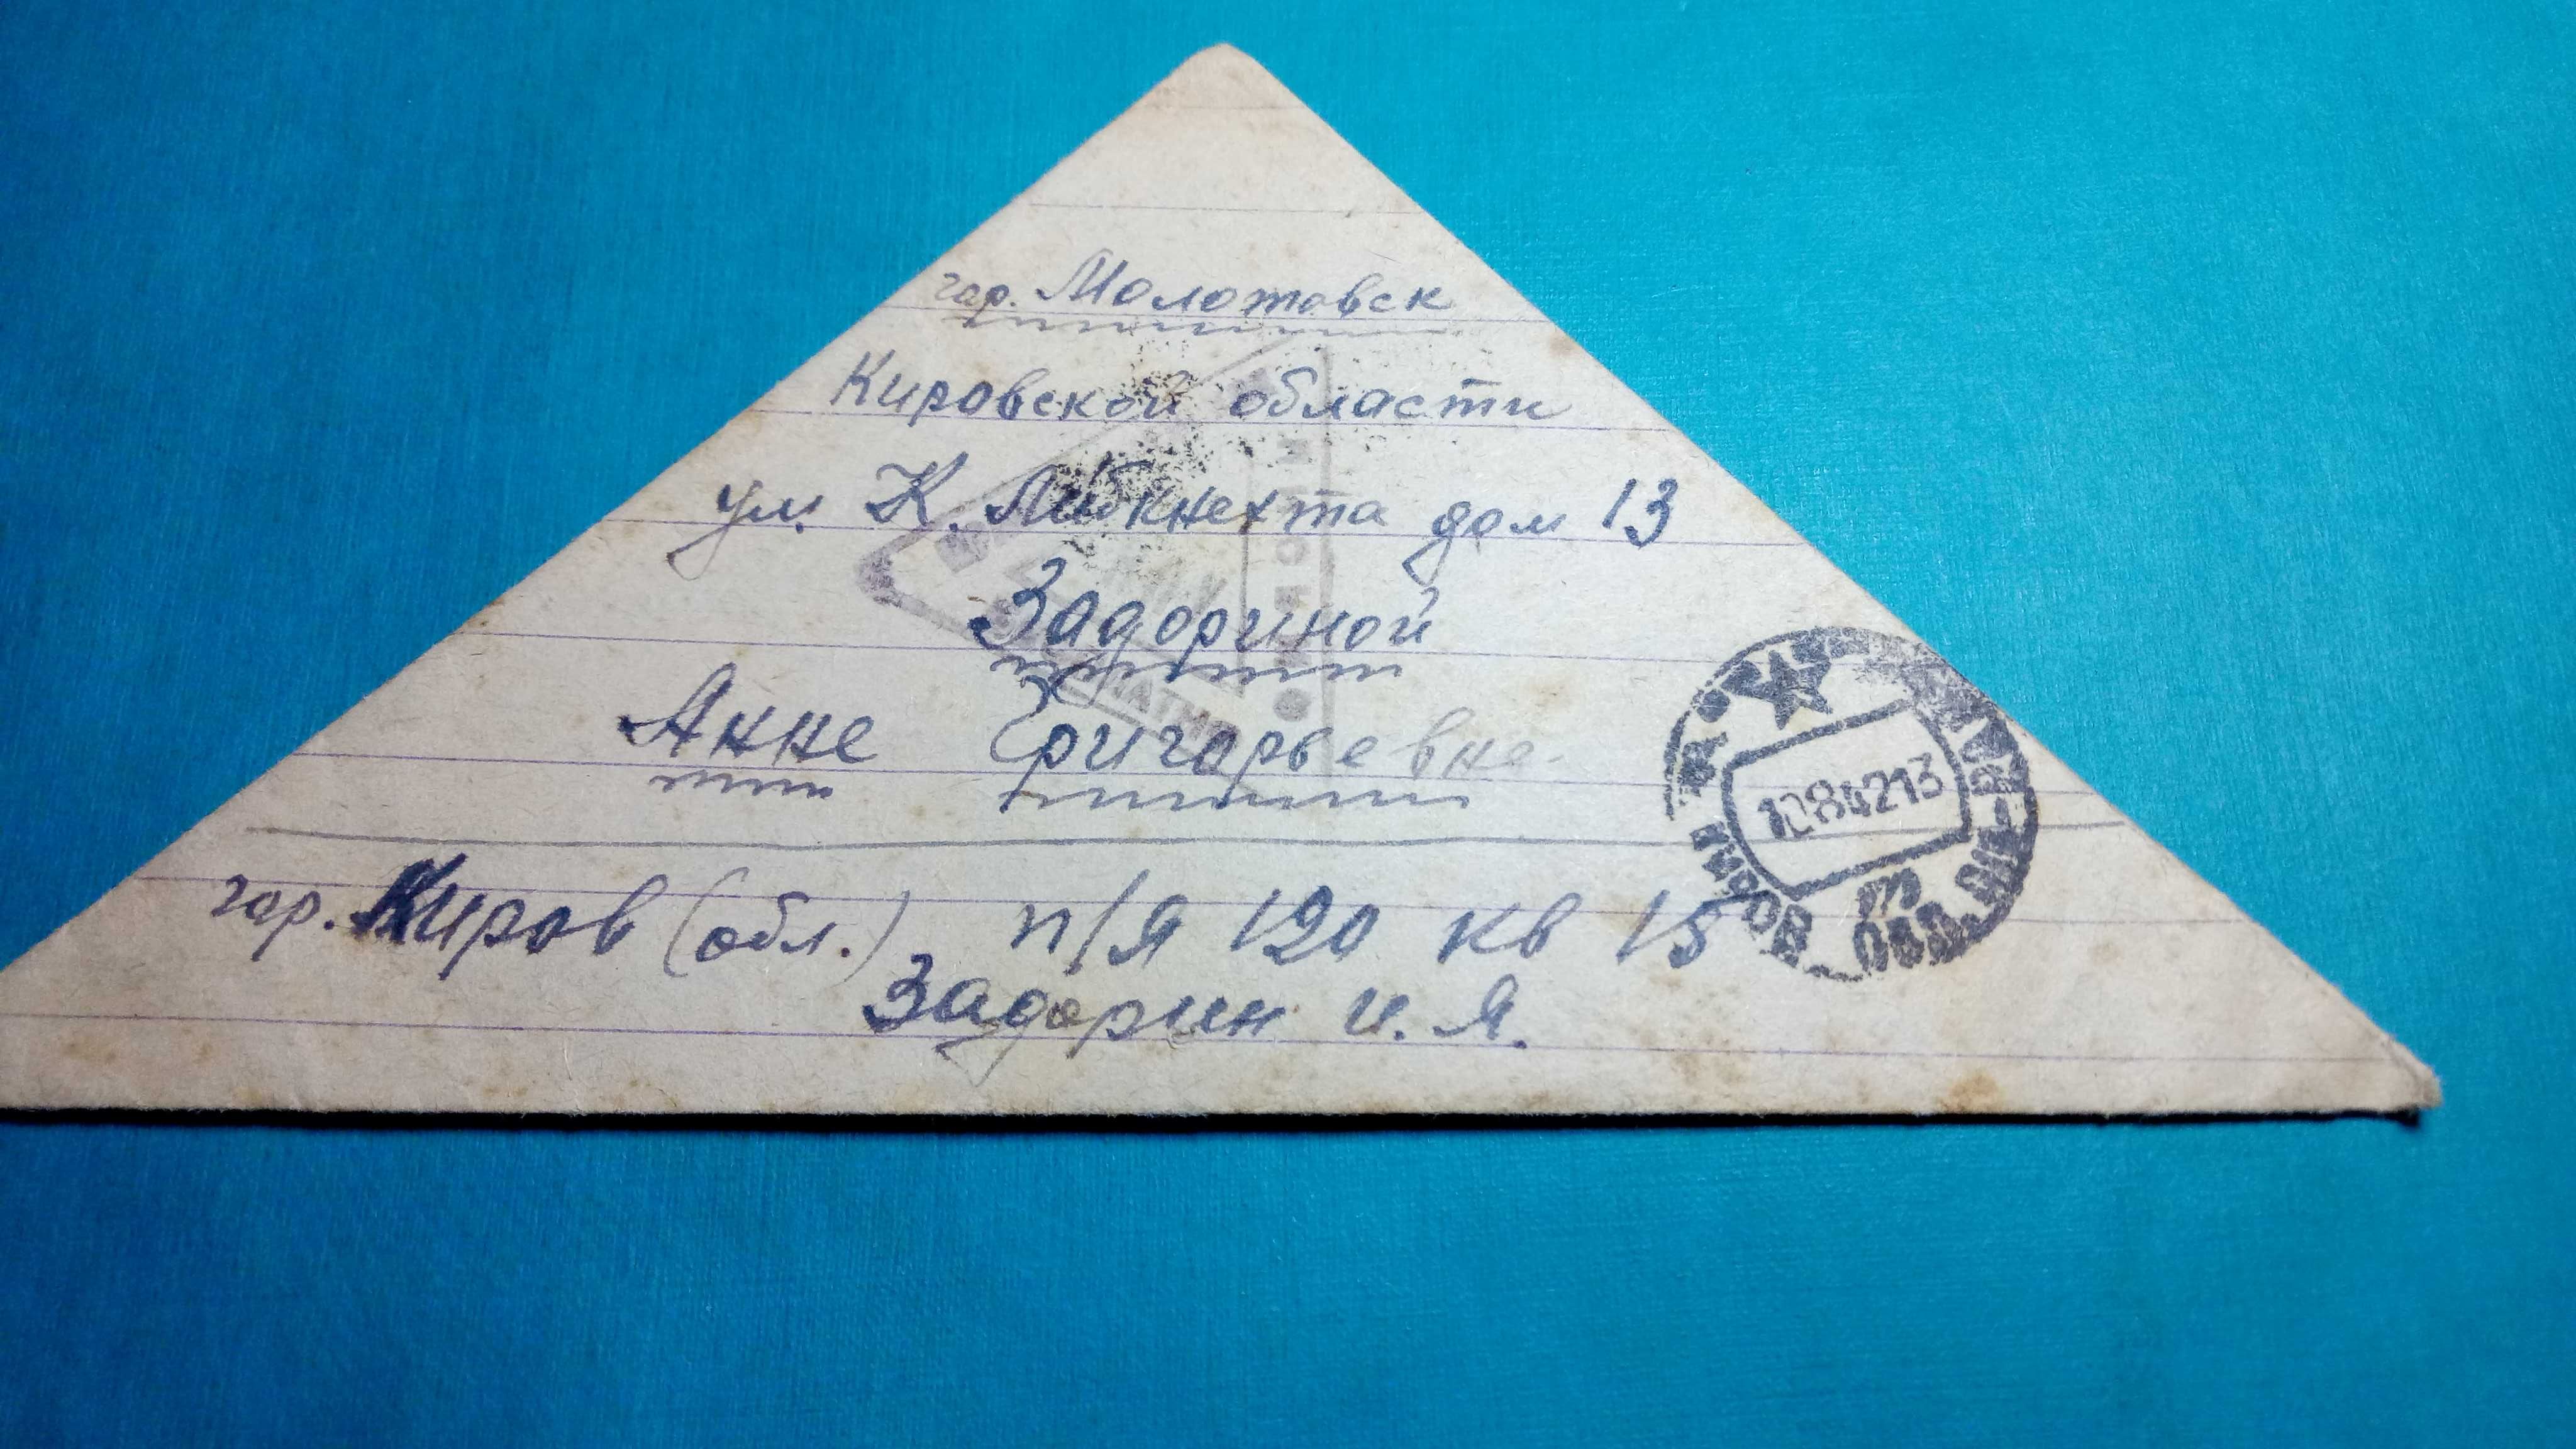 гор. Молотовск
Кировской области
ул. К. Либкнехта дом 13
Задориной
Анне Григорьевне.
гор. Киров (обл.) п/я 120 кв 15
Задорин И. Я.
КИРОВ ОБЛ
1084213